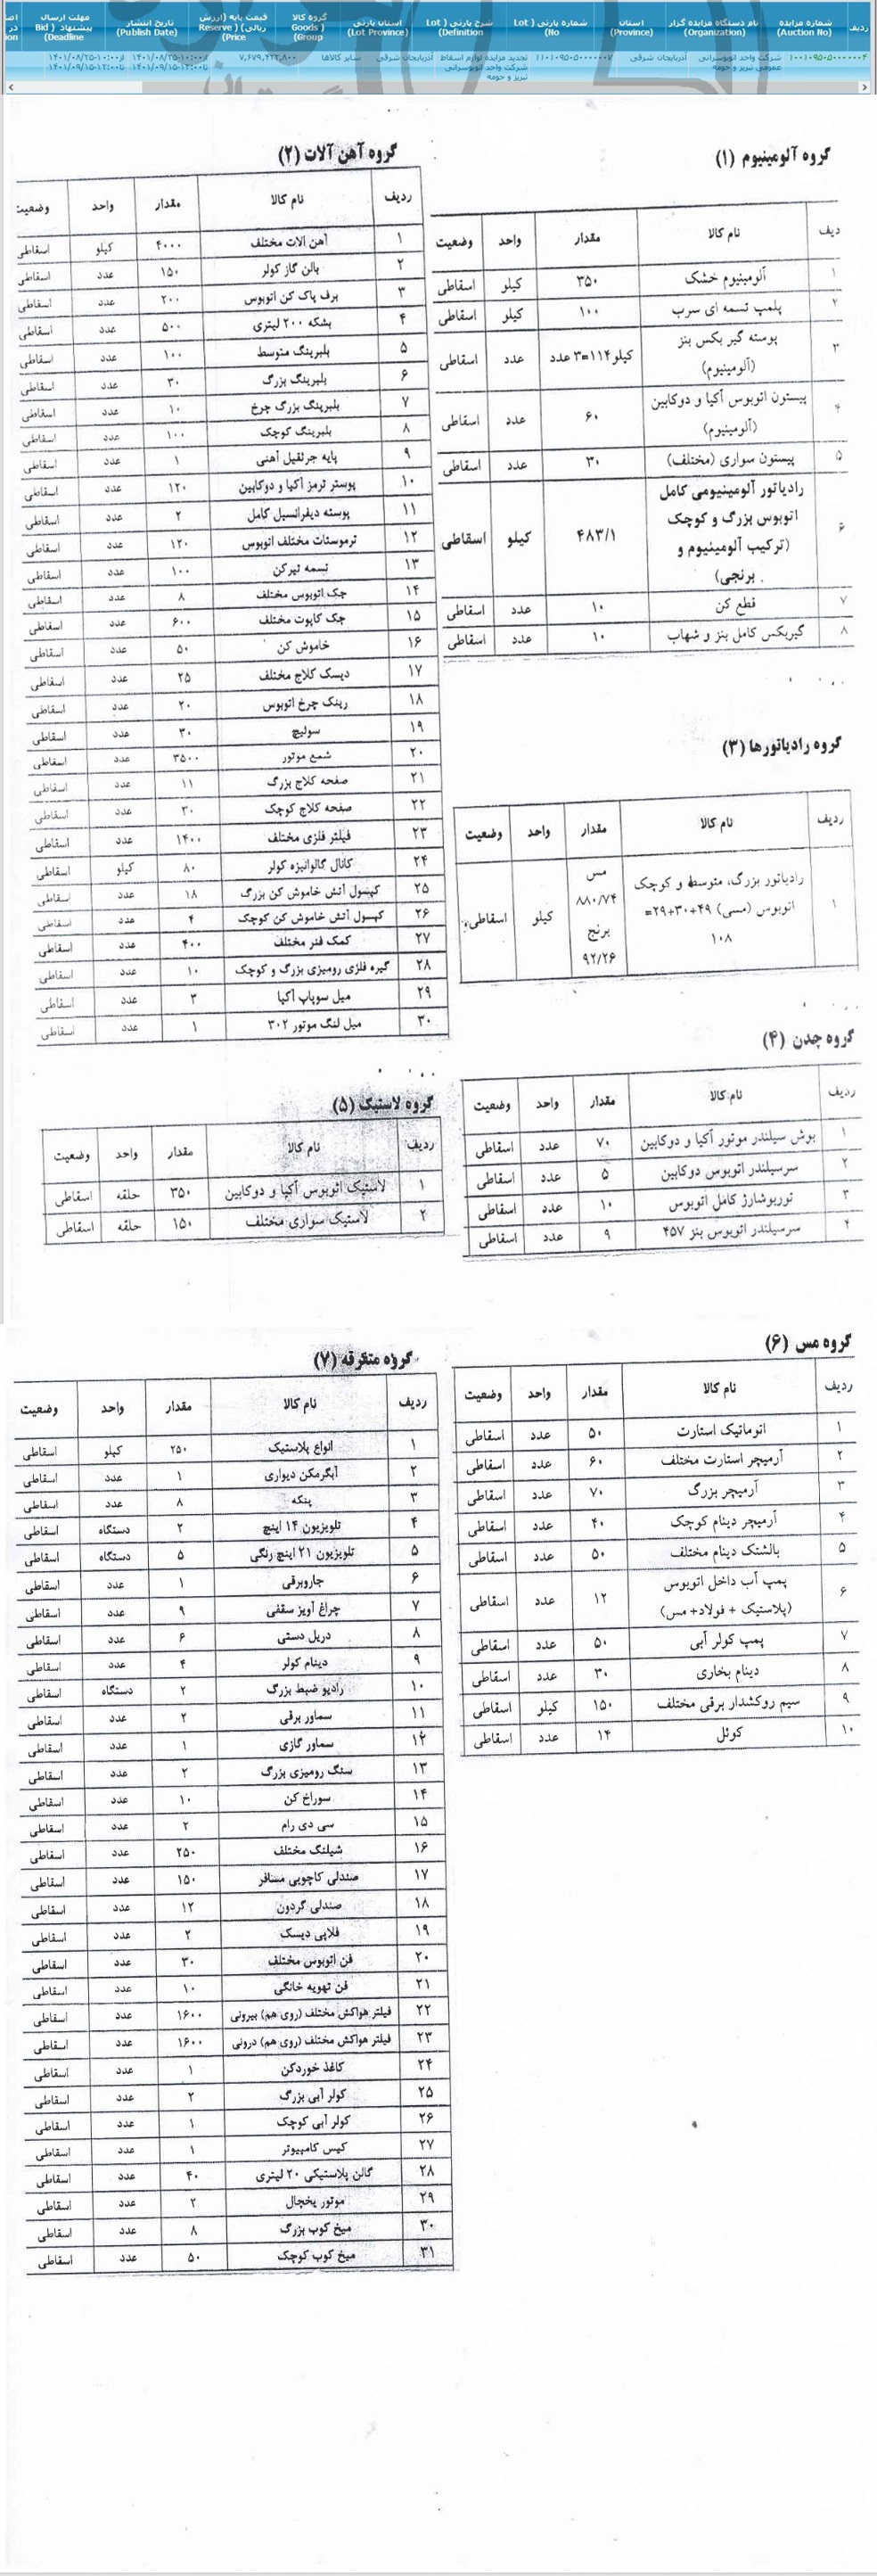 ردیف	شماره مزایده (Auction No)	نام دستگاه مزایده گزار (Organization)	استان (Province)	شماره پارتی ( Lot No)	شرح پارتی ( Lot Definition)	استان پارتی (Lot Province)	گروه کالا ( Goods Group)	قیمت پایه (ارزش ریالی) ( Reserve Price)	تاریخ انتشار (Publish Date)	مهلت ارسال پیشنهاد ( Bid Deadline)
شرکت واحد اتوبوسرانی عمومی تبریز و حومه	آذربایجان شرقی	تجدید مزایده لوازم اسقاط شرکت واحد اتوبوسرانی تبریز و حومه	آذربایجان شرقی	سایر کالاها	۷,۶۷۹,۴۲۲,۸۰۰	از۱۴۰۱/۰۸/۲۵-۱۰:۰۰ تا۱۴۰۱/۰۹/۱۵-۱۲:۰۰	از۱۴۰۱/۰۸/۲۵-۱۰:۰۰ تا۱۴۰۱/۰۹/۱۵-۱۲:۰۰
گروه آلومینیوم (۱)
ردیف	نام کالا	مقدار	واحد	وضعیت
۱	آلومینیوم خشک	۳۵۰	کیلو	اسقاطی
۲	پلمپ تسمه ای سرب	۱۰۰	کیلو	اسقاطی
۳	پوسته گیر بکس بنز (آلومینیوم)	۳=۱۱۴کیلو عدد	عدد	اسقاطی
۴	پیستون اتوبوس آکیا و دوکابین (آلومینیوم)	۶۰	عدد	اسقاطی
۵	پیستون سواری (مختلف)	۳۰	عدد	اسقاطی
۶	رادیاتور آلومینیومی کامل اتوبوس بزرگ و کوچک (ترکیب آلومینیوم و برنجی)	۴۸۳/۱	کیلو	اسقاطی
۷	قطع کن	۱۰	عدد	اسقاطی
۸	گیربکس کامل بنز و شهاب	۱۰	عدد	اسقاطی
گروه آهن آلات (۲)
ردیف	نام کالا	مقدار	واحد	وضعیت
۱	آهن آلات مختلف	۴۰۰۰	کیلو	اسقاطی
۲	بالن گاز کولر	۱۵۰	عدد	اسقاطی
۳	برف پاک کن اتوبوس	۲۰۰	عدد	اسقاطی
۴	بشکه ۲۰۰ لیتری	۵۰۰	عدد	اسقاطی
۵	بلبرینگ متوسط	۱۰۰	عدد	اسقاطی
۶	بلبرینگ بزرگ	۳۰	عدد	اسقاطی
۷	بلبرینگ بزرگ چرخ	۱۰	عدد	اسقاطی
۸	بلبرینگ کوچک	۱۰۰	عدد	اسقاطی
۹	پایه جرثقیل آهنی	۱	عدد	اسقاطی
۱۰	پوستر ترمز آکیا و دوکابین	۱۲۰	عدد	اسقاطی
۱۱	پوسته دیفرانسیل کامل	۲	عدد	اسقاطی
۱۲	ترموستات مختلف اتوبوس	۱۲۰	عدد	اسقاطی
۱۳	تسمه تیرکن	۱۰۰	عدد	اسقاطی
۱۴	جک اتوبوس مختلف	۸	عدد	اسقاطی
۱۵	جک کاپوت مختلف	۶۰۰	عدد	اسقاطی
۱۶	خاموش کن	۵۰	عدد	اسقاطی
۱۷	دیسک کلاچ مختلف	۲۵	عدد	اسقاطی
۱۸	رینگ چرخ اتوبوس	۲۰	عدد	اسقاطی
۱۹	سولیچ	۳۰	عدد	اسقاطی
۲۰	شمع موتور	۳۵۰۰	عدد	اسقاطی
۲۱	صفحه کلاچ بزرگ	۱۱	عدد	اسقاطی
۲۲	صفحه کلاچ کوچک	۳۰	عدد	اسقاطی
۲۳	فیلتر فلزی مختلف	۱۴۰۰	عدد	اسقاطی
۲۴	کانال گالوانیزه کولر	۸۰	کیلو	اسقاطی
۲۵	کپسول آتش خاموش کن بزرگ	۱۸	عدد	اسقاطی
۲۶	کپسول آتش خاموش کن کوچک	۴	عدد	اسقاطی
۲۷	کمک فنر مختلف	۴۰۰	عدد	اسقاطی
۲۸	گیره فلزی رومیزی بزرگ و کوچک	۱۰	عدد	اسقاطی
۲۹	میل سوپاپ آکیا	۳	عدد	اسقاطی
۳۰	میل لنگ موتور ۳۰۲	۱	عدد	اسقاطی
گروه رادیاتورها (۳)
ردیف	نام کالا	مقدار	واحد	وضعیت
۱	رادیاتور بزرگ، متوسط و کوچک اتوبوس (مسی) ۴۹+۳۰+۲۹= ۱۰۸	مس ۸۸۰/۷۴ برنج ۹۲/۲۶	کیلو	اسقاطی
گروه چدن (۴)
ردیف	نام کالا	مقدار	واحد	وضعیت
۱	بوش سیلندر موتور آکیا و دوکابین	۷۰	عدد	اسقاطی
۲	سرسیلندر اتوبوس دوکابین	۵	عدد	اسقاطی
۳	توربوشارژ کامل اتوبوس	۱۰	عدد	اسقاطی
۴	سرسیلندر اتوبوس بنز ۴۵۷	۹	عدد	اسقاطی
گروه لاستیک (۵)
ردیف	نام کالا	مقدار	واحد	وضعیت
۱	لاستیک اتوبوس آکیا و دوکابین	۳۵۰	حلقه	اسقاطی
۲	لاستیک سواری مختلف	۱۵۰	حلقه	اسقاطی
گروه مس (۶)
ردیف	نام کالا	مقدار	واحد	وضعیت
۱	اتوماتیک استارت	۵۰	عدد	اسقاطی
۲	آرمیچر استارت مختلف	۶۰	عدد	اسقاطی
۳	آرمیچر بزرگ	۷۰	عدد	اسقاطی
۴	آرمیچر دینام کوچک	۴۰	عدد	اسقاطی
۵	بالشتک دینام مختلف	۵۰	عدد	اسقاطی
۶	پمپ آب داخل اتوبوس (پلاستیک + فولاد+ مس)	۱۲	عدد	اسقاطی
۷	پمپ کولر آبی	۵۰	عدد	اسقاطی
۸	دینام بخاری	۳۰	عدد	اسقاطی
۹	سیم روکشدار برقی مختلف	۱۵۰	کیلو	اسقاطی
۱۰	کوئل	۱۴	عدد	اسقاطی
گروه متفرقه (۷)
ردیف	نام کالا	مقدار	واحد	وضعیت
۱	انواع پلاستیک	۲۵۰	کیلو	اسقاطی
۲	آبگرمکن دیواری	۱	عدد	اسقاطی
۳	پنکه	۸	عدد	اسقاطی
۴	تلویزیون ۱۴ اینچ	۲	دستگاه	اسقاطی
۵	تلویزیون ۲۱ اینچ رنگی	۵	دستگاه	اسقاطی
۶	جاروبرقی	۱	عدد	اسقاطی
۷	چراغ آویز سقفی	۹	عدد	اسقاطی
۸	دریل دستی	۶	عدد	اسقاطی
۹	دینام کولر	۴	عدد	اسقاطی
۱۰	رادیو ضبط بزرگ	۲	دستگاه	اسقاطی
۱۱	سماور برقی	۲	عدد	اسقاطی
۱۲	سماور گازی	۱	عدد	اسقاطی
۱۳	سنگ رومیزی بزرگ	۲	عدد	اسقاطی
۱۴	سوراخ کن	۱۰	عدد	اسقاطی
۱۵	سی دی رام	۲	عدد	اسقاطی
۱۶	شیلنگ مختلف	۲۵۰	عدد	اسقاطی
۱۷	صندلی کاچویی مسافر	۱۵۰	عدد	اسقاطی
۱۸	صندلی گردون	۱۲	عدد	اسقاطی
۱۹	فلاپی دیسک	۲	عدد	اسقاطی
۲۰	فن اتوبوس مختلف	۳۰	عدد	اسقاطی
۲۱	فن تهویه خانگی	۱۰	عدد	اسقاطی
۲۲	فیلتر هواکش مختلف (روی هم) بیرونی	۱۶۰۰	عدد	اسقاطی
۲۳	فیلتر هواکش مختلف (روی هم) درونی	۱۶۰۰	عدد	اسقاطی
۲۴	کاغذ خوردکن	۱	عدد	اسقاطی
۲۵	کولر آبی بزرگ	۲	عدد	اسقاطی
۲۶	کولر آبی کوچک	۱	عدد	اسقاطی
۲۷	کیس کامپیوتر	۱	عدد	اسقاطی
۲۸	گالن پلاستیکی ۲۰ لیتری	۴۰	عدد	اسقاطی
۲۹	موتور یخچال	۲	عدد	اسقاطی
۳۰	میخ کوب بزرگ	۸	عدد	اسقاطی
۳۱	میخ کوب کوچک	۵۰	عدد	اسقاطی